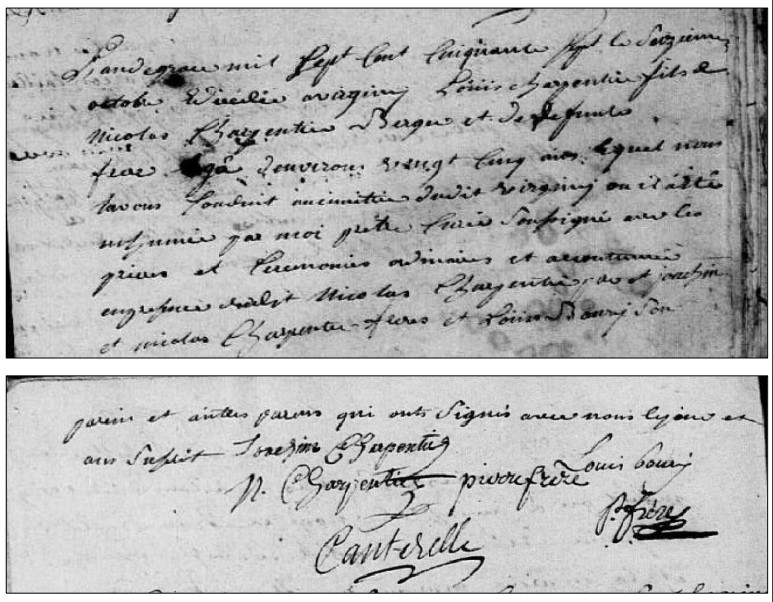 L'an de grace mil sept cent cinquante sept le seizieme
octobre est décédé a virginy Louis charpentier fils de
Nicolas Charpentier Berger et de defunte
frere agé d'environs vingt cinq ans, lequel nous
lavons conduit au cimetier dudit virginy ou il a été
inhumée par moi pretre curé soussigné avec les
prieres et ceremonies ordinaires et accoutumée
en presence dudit Nicolas Charpentier et joachim
et nicolas Charpentier freres et Louis Boury son
parein et autres parens qui onts signés avec nous le jour et
ans susdit Joachim Charpentier
N. Charpentier pierre frere Louis boury
P. frère
Canterelle